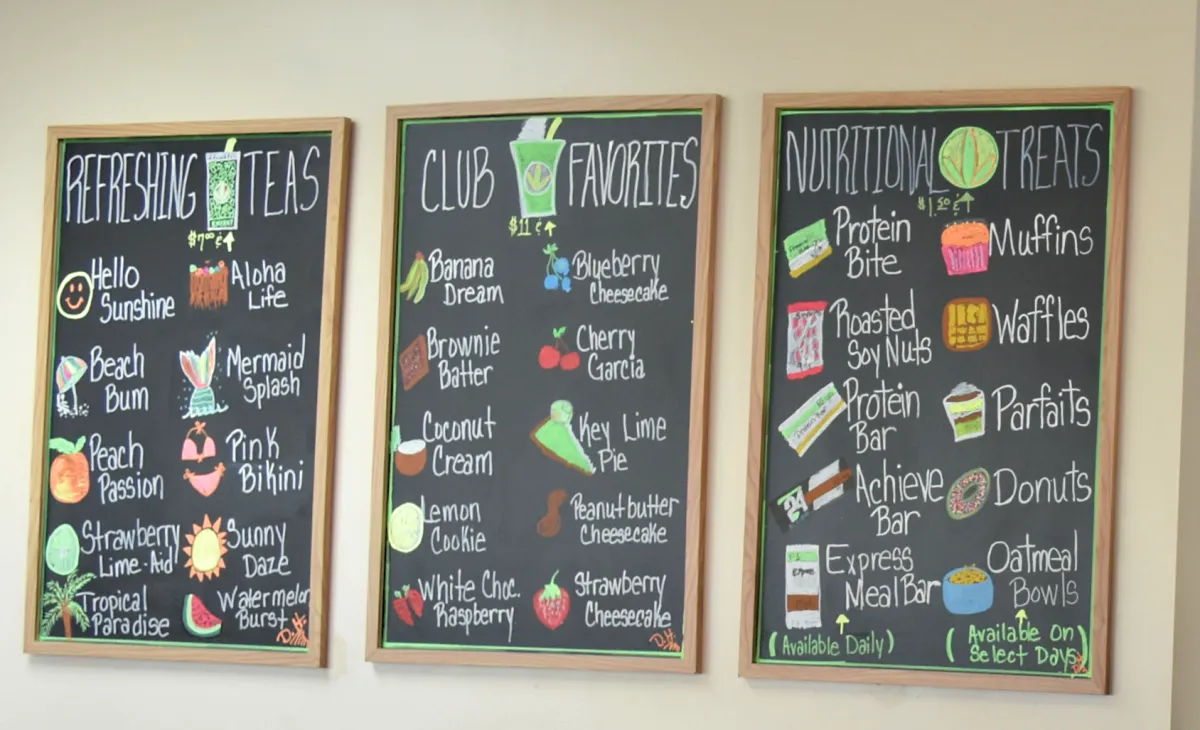 REFRESHING TEAS
$7.00 & ↑
Hello
Sunshine
Aloha
Life
Beach
Bum
Mermaid
Splash
Peach
Passion
Pink
Bikini
Strawberry
Lime-Aid
Sunny
Daze
Tropical
Paradise
Watermelon
Burst
CLUB FAVORITES
$11 & ↑
Banana
Dream
Blueberry
Cheesecake
Brownie
Batter
Cherry
Garcia
Coconut
Cream
Key Lime
Pie
Lemon
Cookie
Peanutbutter
Cheesecake
White Choc.
Raspberry
Strawberry
Cheesecake
NUTRITIONAL TREATS
$1.50 & ↑
Protein
Bite
Muffins
Roasted
Soy Nuts
Waffles
Protein
Bar
Parfaits
24
Achieve
Bar
Donuts
Express
Meal Bar
Oatmeal
Bowls
(Available Daily)
(Available On
Select Days)